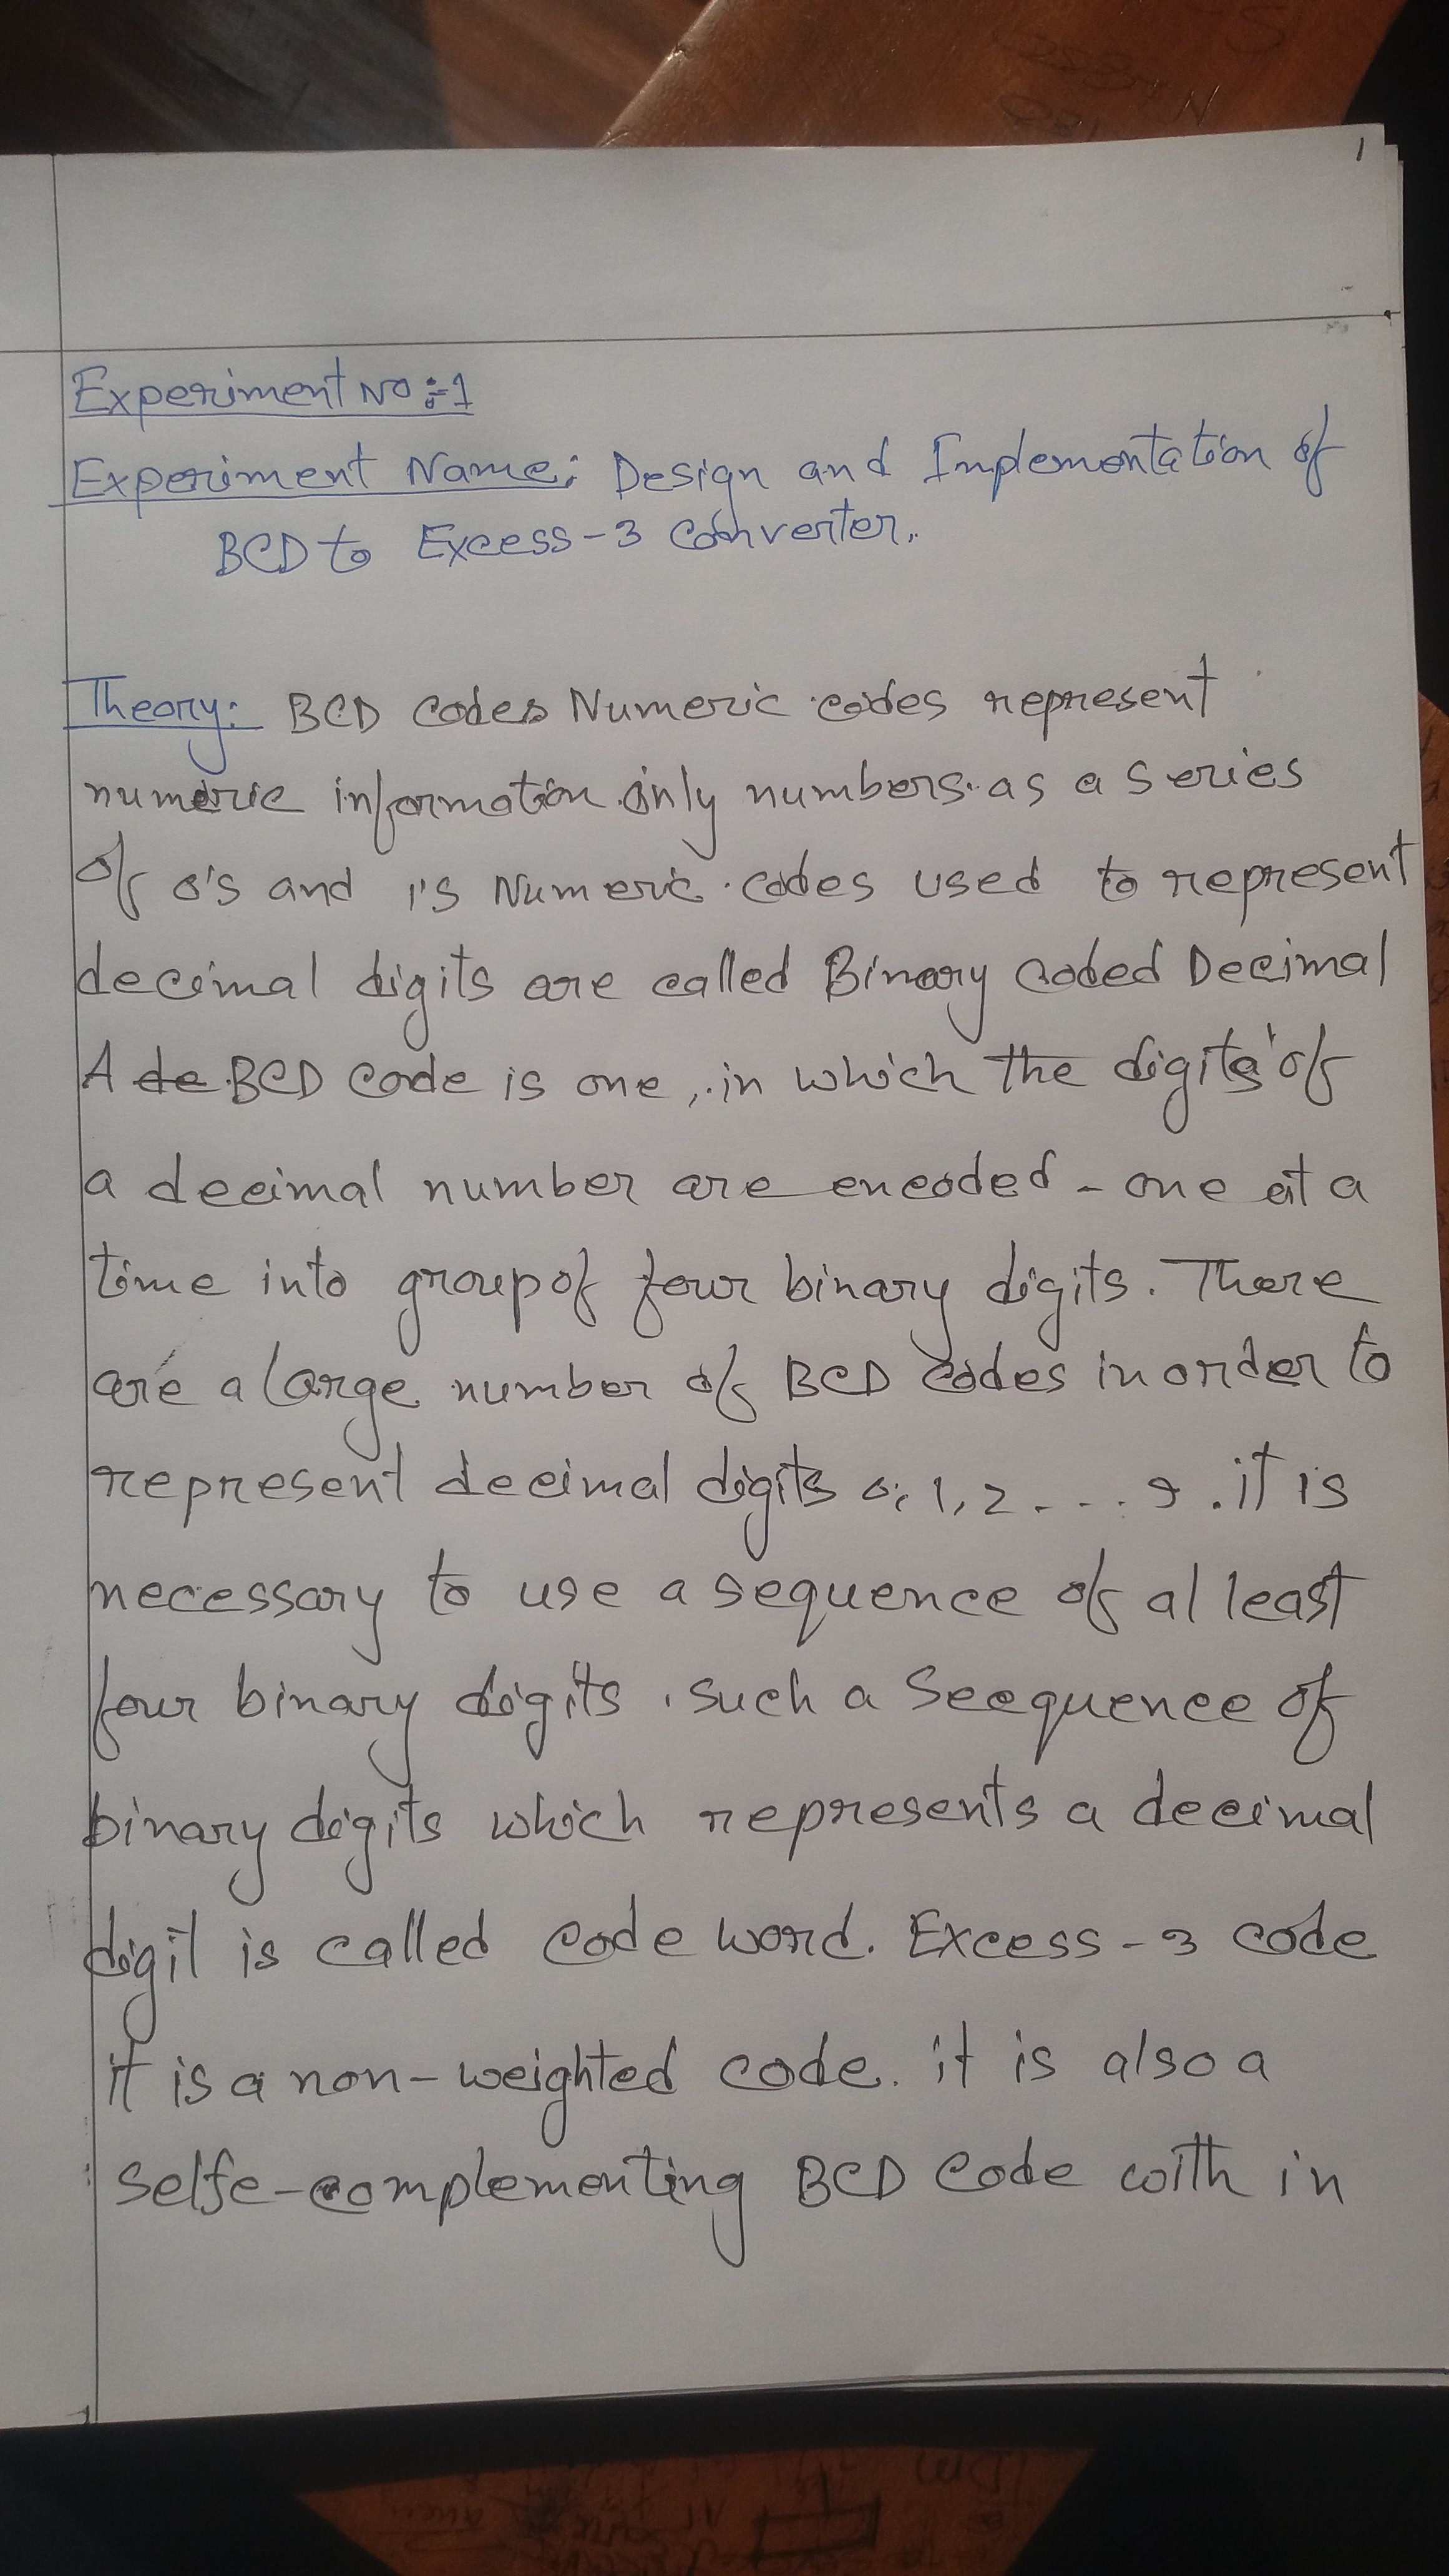 1
Experiment No:-1
Experiment Name: Design and Implementation of
BCD to Excess-3 Converter.
Theory: BCD Codes Numeric codes represent
numeric information only numbers as a series
of 0's and 1's Numeric codes used to represent
decimal digits are called Binary Coded Decimal
A de BCD Code is one, in which the digits of
a decimal number are encoded - one at a
time into group of four binary digits. There
are a large number of BCD Codes in order to
represent decimal digits 0, 1, 2 - - . . 9 . it is
necessary to use a sequence of al least
four binary digits . such a Seequence of
binary digits which represents a decimal
digil is called Code word. Excess-3 code
it is a non-weighted code. it is also a
Selfe-complementing BCD Code with in